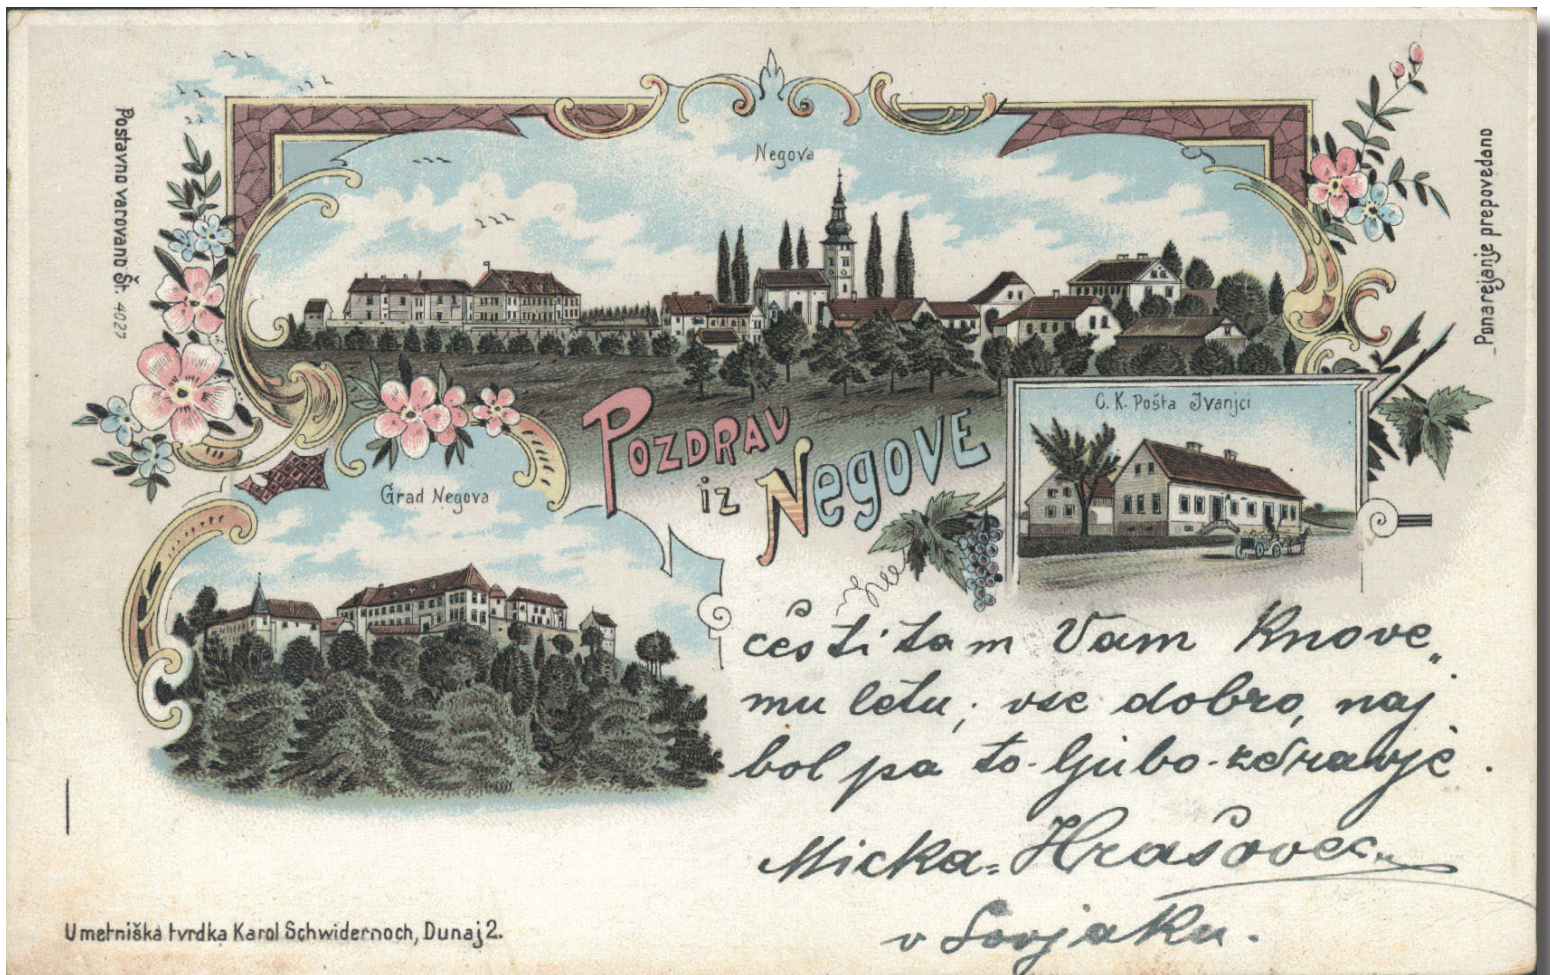 Postavno varovano Št. 4027
Negova
Ponarejanje prepovedano
C. K. Pošta Ivanjci
POZDRAV
iz NEGOVE
Grad Negova
čestitam Vam Knove„
mu letu, vse dobro, naj
bol pa to-ljubo-zdravje.
Micka= Hrašovec
v Sovjaku.
Umetniška tvrdka Karol Schwidernoch, Dunaj 2.